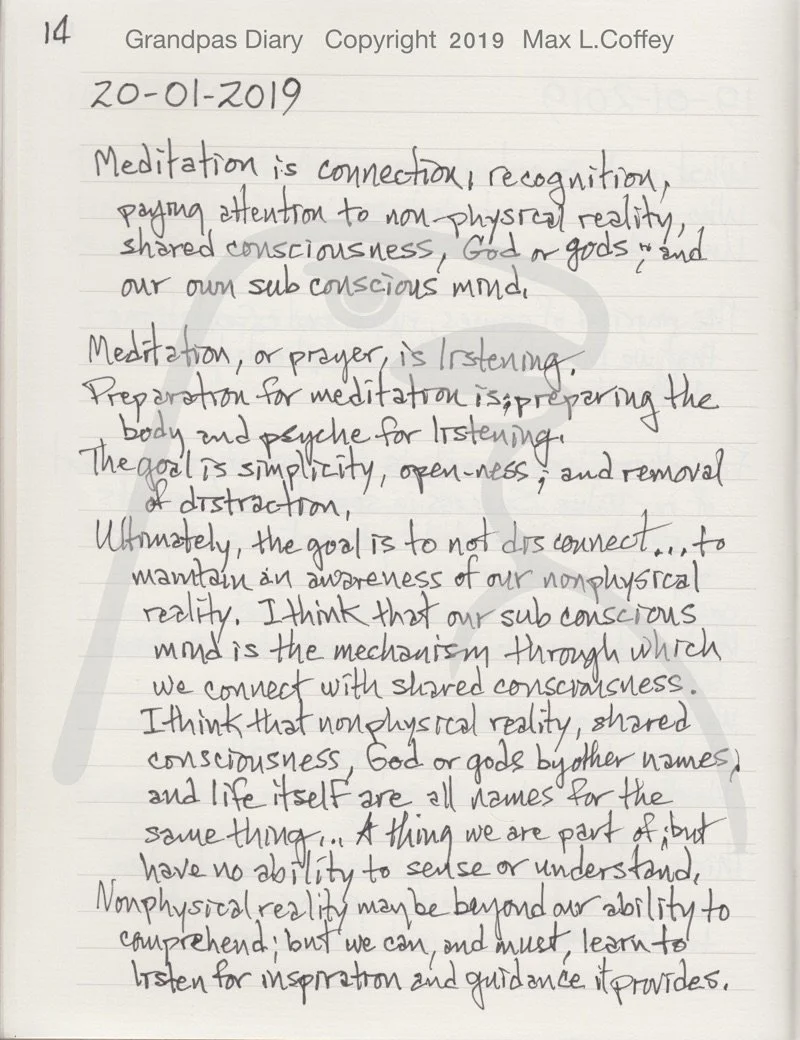 14
Grandpas Diary Copyright 2019 Max L.Coffey
20-01-2019
Meditation is connection, recognition,
paying attention to non-physical reality,
shared consciousness, God or gods; and
our own sub conscious mind.
Meditation, or prayer, is listening.
Preparation for meditation is; preparing the
body and psyche for listening.
The goal is simplicity, open-ness; and removal
of distraction,
Ultimately, the goal is to not disconnect... to
maintain an awareness of our nonphysical
reality. I think that our sub conscious
mind is the mechanism through which
we connect with shared consciousness.
I think that nonphysical reality, shared
consciousness, God or gods by other names,
and life itself are all names for the
same thing... A thing we are part of; but
have no ability to sense or understand.
Nonphysical reality may be beyond our ability to
comprehend; but we can, and must, learn to
listen for inspiration and guidance it provides.